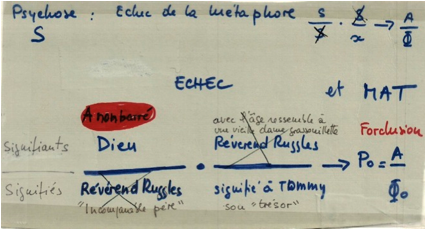 Psychose : Echec de la métaphore S/$ . $/x → A/Φ
S
ECHEC et MAT
A non barré
avec l'âge ressemble à
une vieille dame grassouillette
Forclusion
Signifiants Dieu . Révérend Ruggles → P₀ = A
Signifiés Révérend Ruggles signifié à Tommy Φ₀
"Incomparable père" son "trésor"